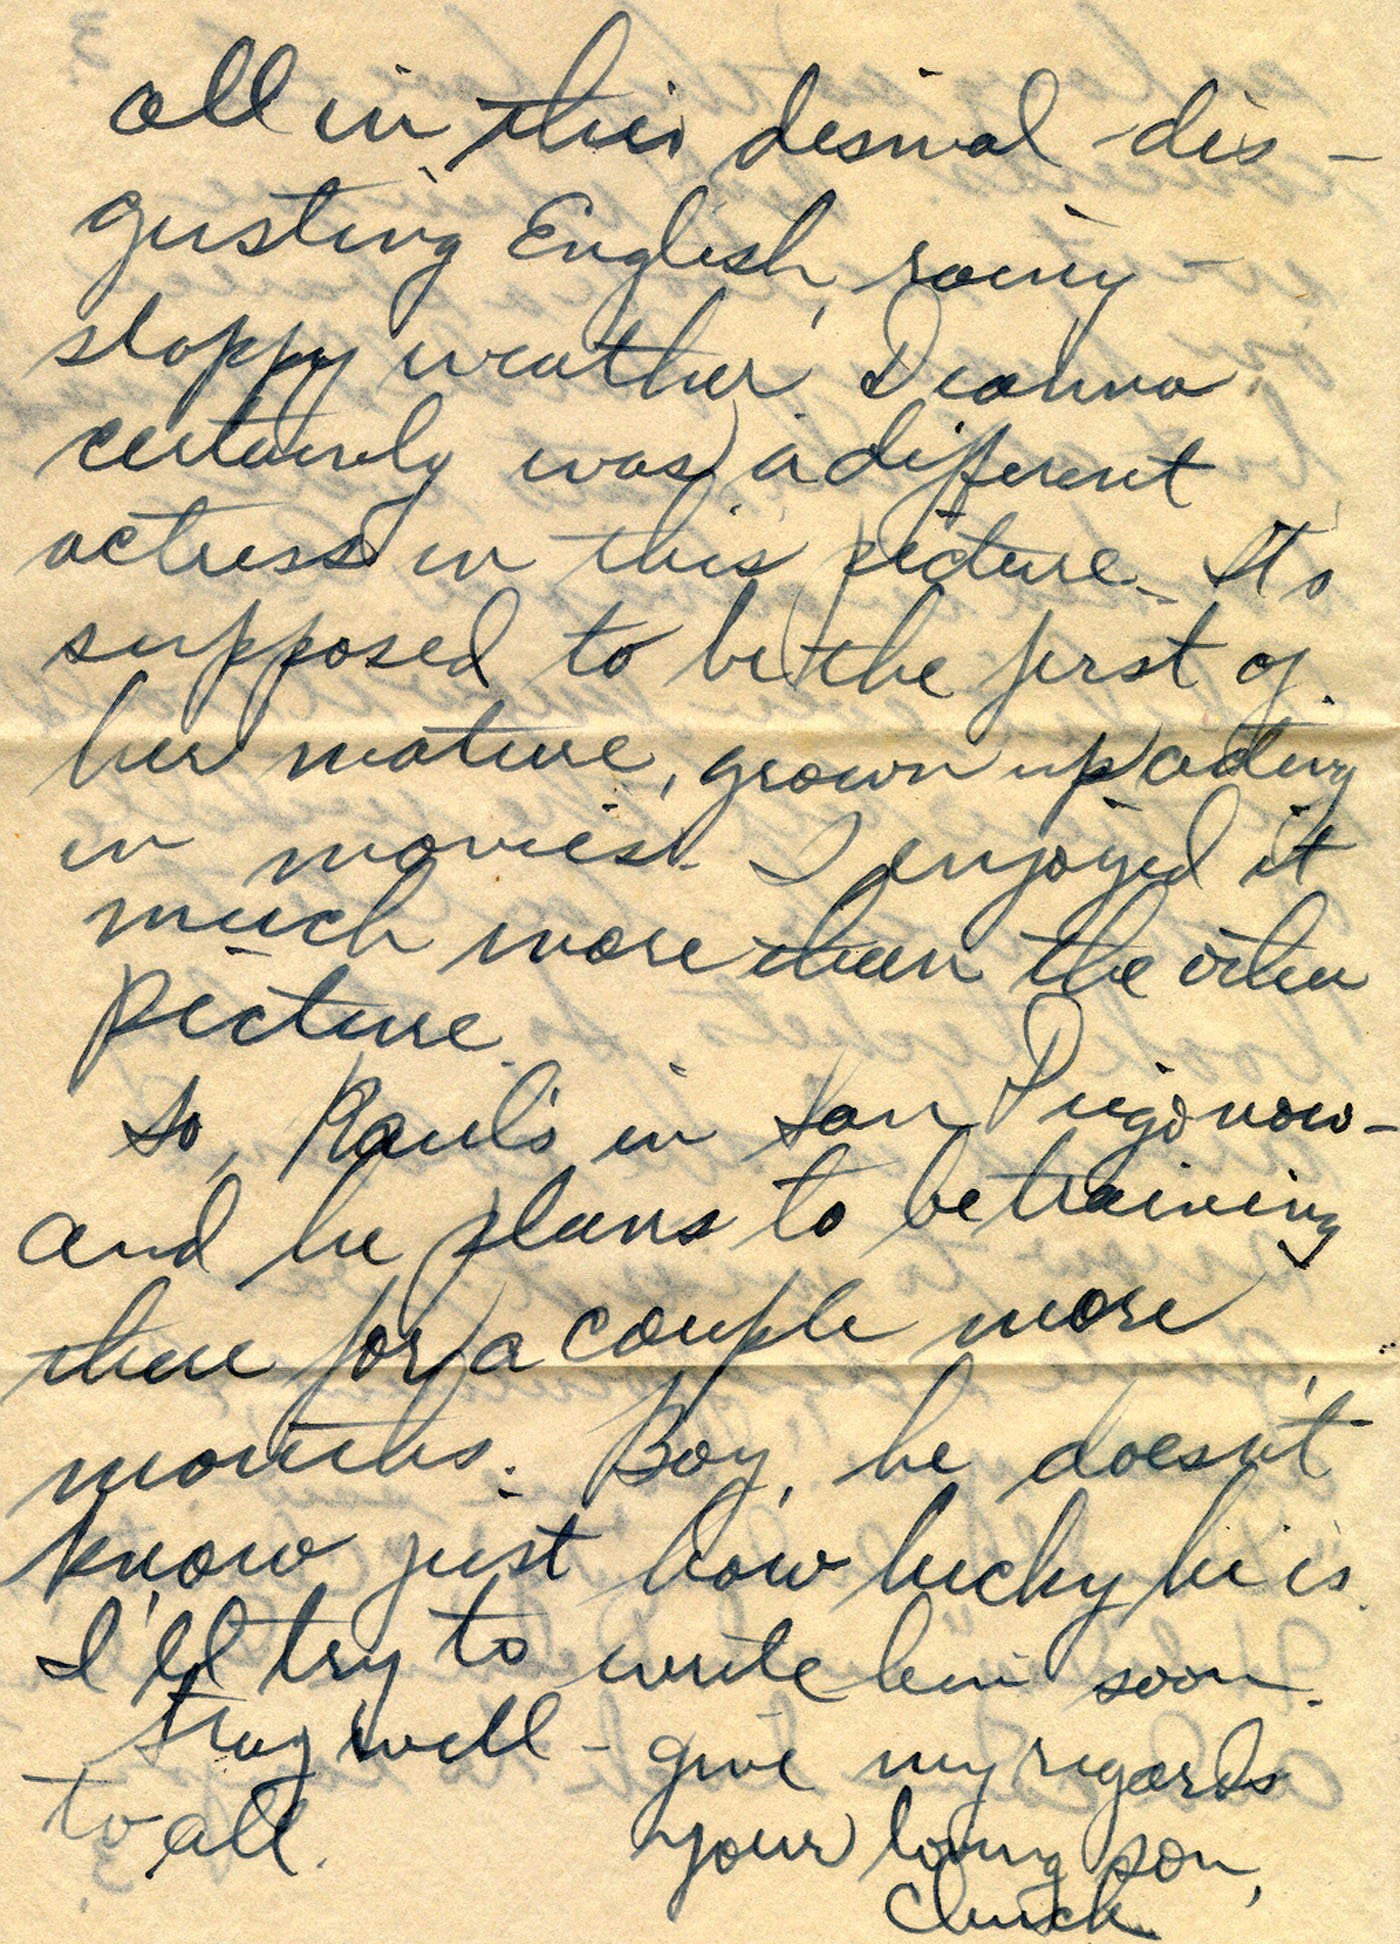 all in this desmal - dis-
gusting English, rainy -
sloppy weather. Deanna
certainly was a different
actress in this picture. It's
supposed to be the first of
her mature, grown up acting
in movies. I enjoyed it
much more than the other
picture.
So, Raul's in San Diego now -
and he plans to be training
there for a couple more
months. Boy, he doesn't
know just how lucky he is.
I'll try to write him soon.
Stay well - give my regards
to all.
Your loving son,
Chuck